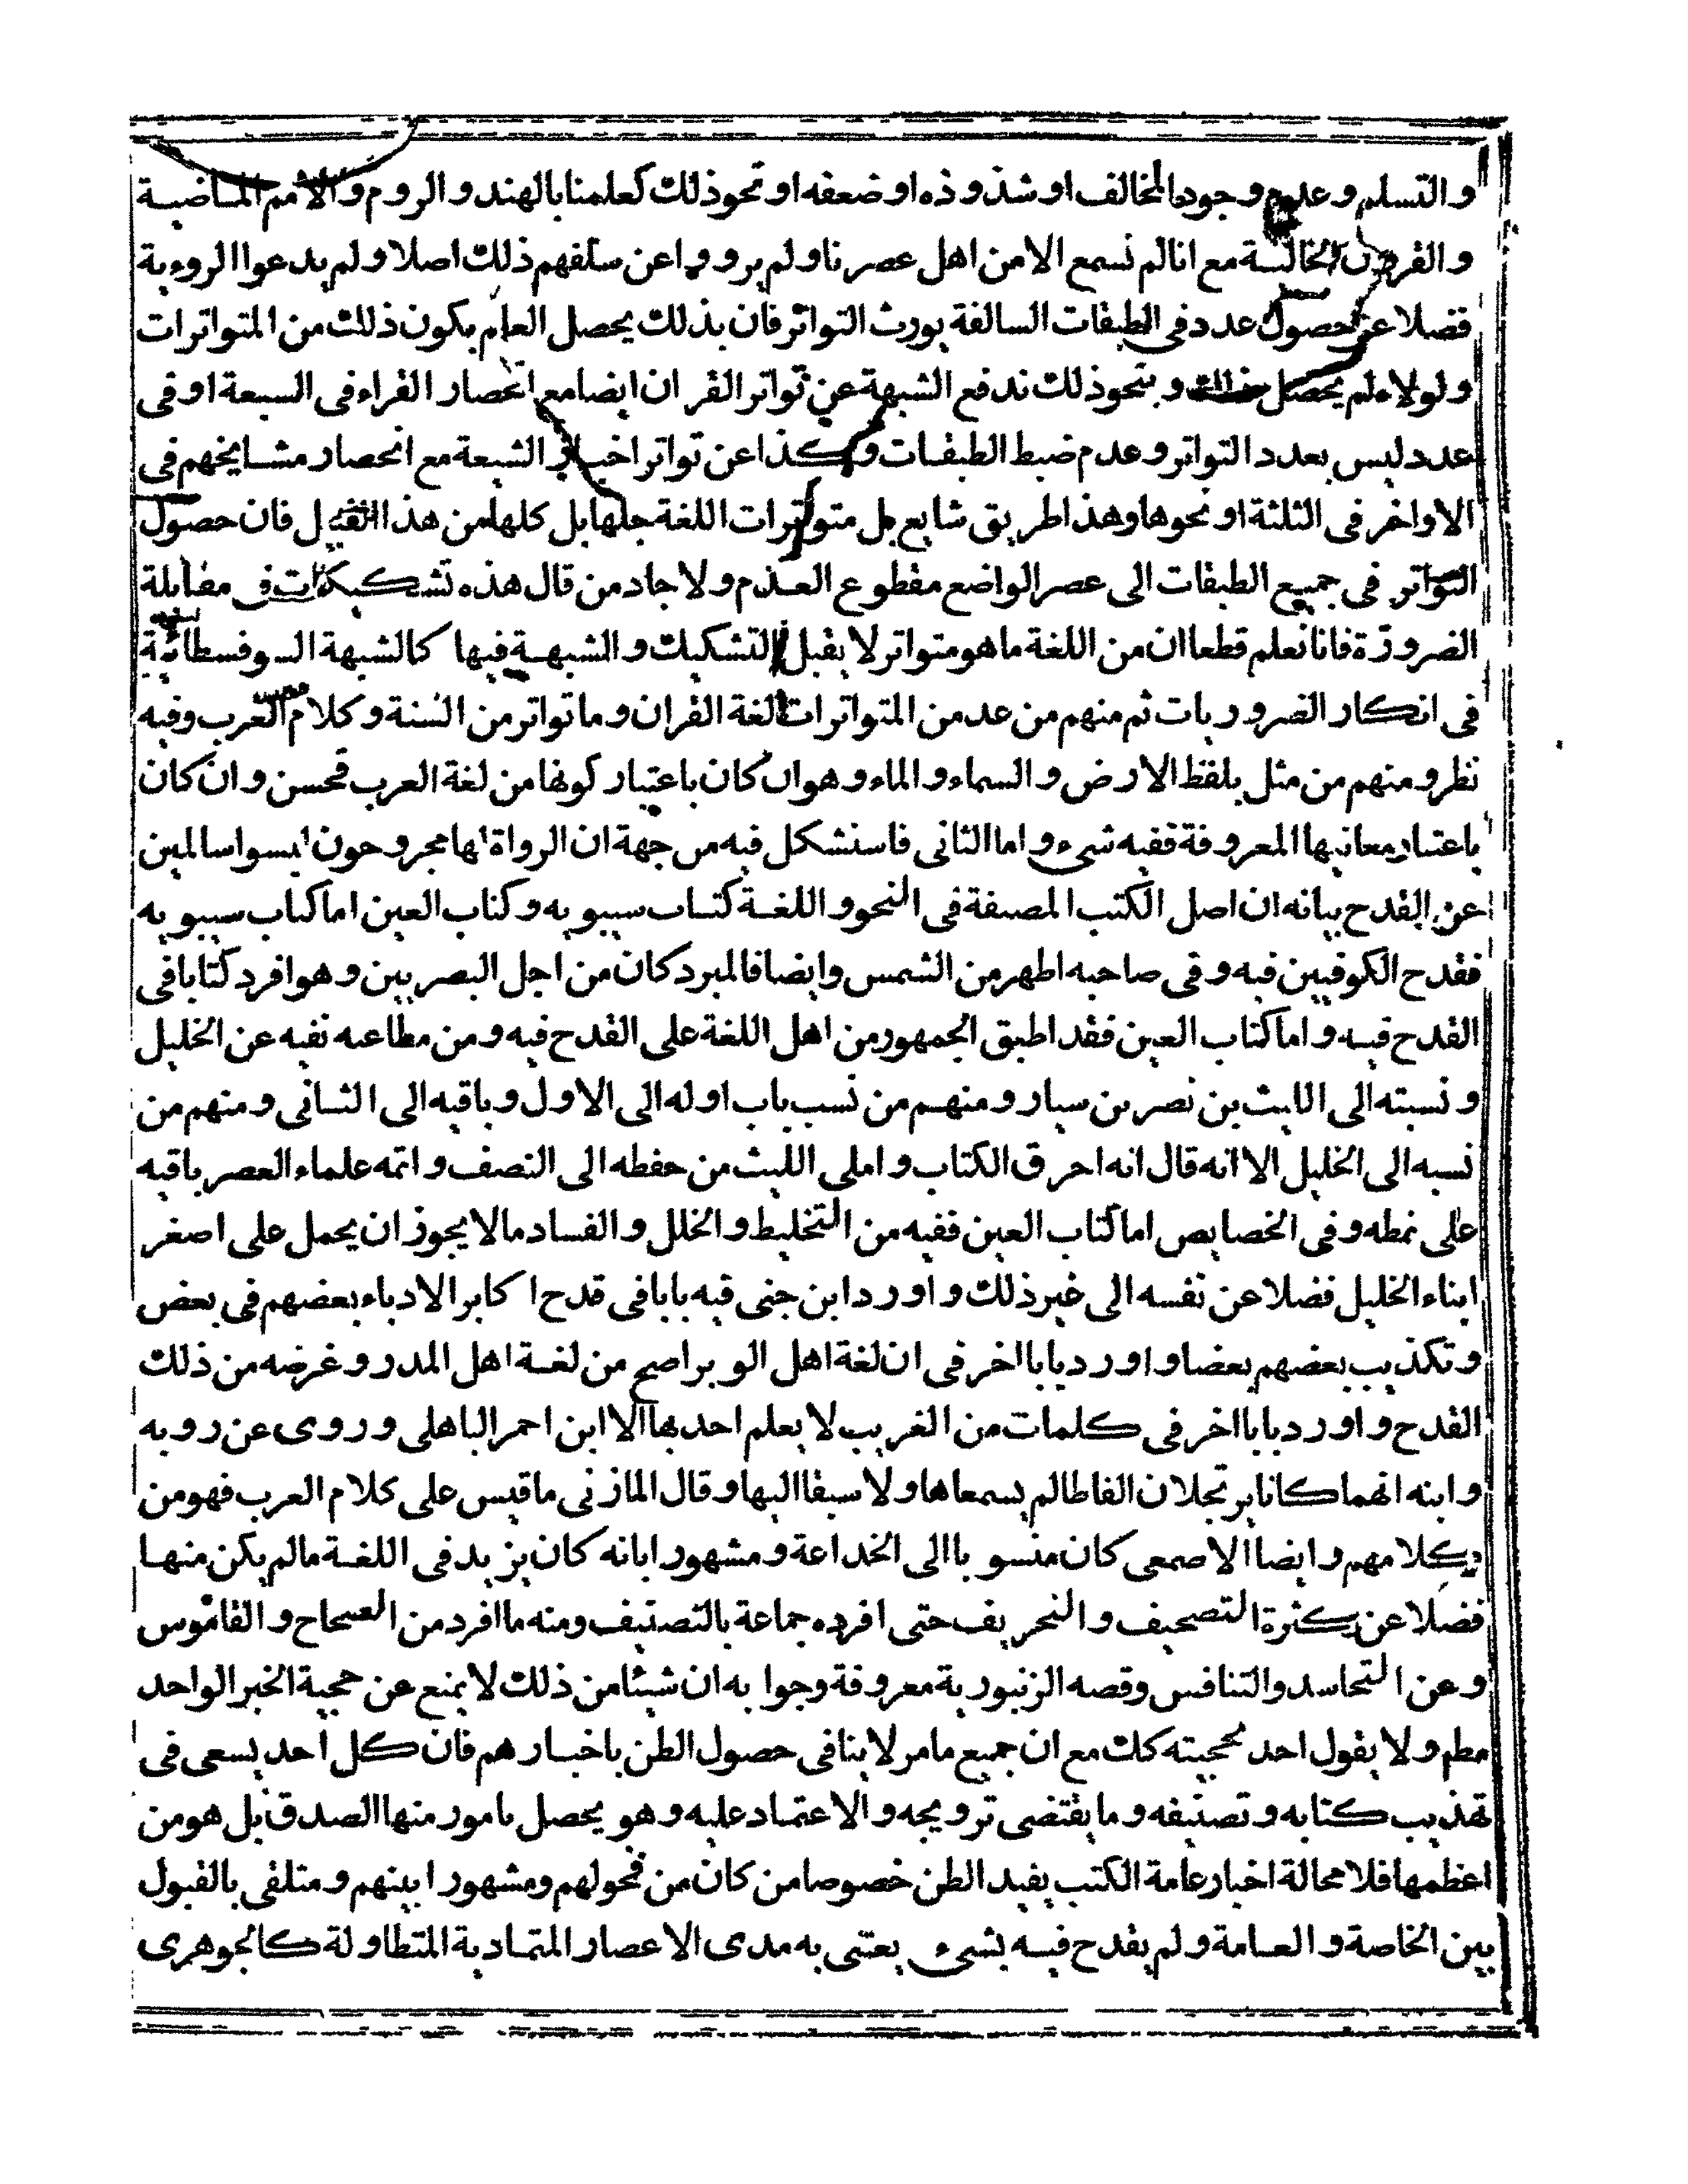 والتسلم وعدم وجود المخالف او شذوذه او ضعفه او نحو ذلك كعلمنا بالهند والروم والامم الماضية
والقرون الخالية مع انا لم نسمع الا من اهل عصرنا ولم يرووا عن سلفهم ذلك اصلا ولم يدعوا الروءية
فضلا عن حصول عدد فى الطبقات السالفة يورث التواتر فان بذلك يحصل العلم بكون ذلك من المتواترات
ولولاه لم يحصل ذلك وبنحو ذلك ندفع الشبهة عن تواتر القران ايضا مع انحصار القراء فى السبعة او فى
عدد ليس بعدد التواتر وعدم ضبط الطبقات وكذا عن تواتر اخبار الشيعة مع انحصار مشايخهم فى
الاواخر فى الثلثة او نحوها وهذا طريق شايع بل متواترات اللغة جلها بل كلها من هذا القبيل فان حصول
التواتر فى جميع الطبقات الى عصر الواضع مقطوع العدم ولا جاد من قال هذه تشكيكات فى مقابلة
الضرورة فانا نعلم قطعا ان من اللغة ما هو متواتر لا يقبل التشكيك والشبهة فيها كالشبهة السوفسطائية
فى انكار الضروريات ثم منهم من عد من المتواترات لغة القران وما تواتر من السنة وكلام العرب وفيه
نظر ومنهم من مثل بلفظ الارض والسماء والماء وهو ان كان باعتبار كونها من لغة العرب فحسن وان كان
باعتبار معانيها المعروفة ففيه شىء واما الثانى فاستشكل فيه من جهة ان الرواة لها مجروحون ليسوا سالمين
عن القدح بيانه ان اصل الكتب المصنفة فى النحو واللغة كتاب سيبويه وكتاب العين اما كتاب سيبويه
فقدح الكوفيين فيه وفى صاحبه اظهر من الشمس وايضا فالمبرد كان من اجل البصريين وهو افرد كتابا فى
القدح فيه واما كتاب العين فقد اطبق الجمهور من اهل اللغة على القدح فيه ومن مطاعنه نفيه عن الخليل
ونسبته الى الليث بن نصر بن سيار ومنهم من نسب باب اوله الى الاول وباقيه الى الثانى ومنهم من
نسبه الى الخليل الا انه قال انه احرق الكتاب واملى الليث من حفظه الى النصف واتمه علماء العصر باقيه
على نمطه وفى الخصايص اما كتاب العين ففيه من التخليط والخلل والفساد ما لا يجوز ان يحمل على اصغر
ابناء الخليل فضلا عن نفسه الى غير ذلك واورد ابن جنى فيه بابا فى قدح اكابر الادباء بعضهم فى بعض
وتكذيب بعضهم بعضا واورد بابا اخر فى ان لغة اهل الوبر اصح من لغة اهل المدر وغرضه من ذلك
القدح واورد بابا اخر فى كلمات من الغريب لا يعلم احد بها الا ابن احمر الباهلى وروى عن روبه
وابنه انهما كانا يرتجلان الفاظا لم يسمعاها ولا سبقا اليها وقال المازنى ما قيس على كلام العرب فهو من
كلامهم وايضا الاصمعى كان منسوبا الى الخداعة ومشهورا بانه كان يزيد فى اللغة ما لم يكن منها
فضلا عن كثرة التصحيف والتحريف حتى افرده جماعة بالتصنيف ومنه ما افرد من الصحاح والقاموس
وعن التحاسد والتنافس وقصه الزنبورية معروفة وجوابه ان شيئا من ذلك لا يمنع عن حجية الخبر الواحد
مطم ولا يقول احد بحجيته كك مع ان جميع ما مر لا ينافى حصول الظن باخبارهم فان كل احد يسعى فى
تهذيب كتابه وتصنيفه وما يقتضى ترويجه والاعتماد عليه وهو يحصل بامور منها الصدق بل هو من
اعظمها فلا محالة اخبار عامة الكتب يفيد الظن خصوصا من كان من فحولهم ومشهورا بينهم ومتلقى بالقبول
بين الخاصة والعامة ولم يقدح فيه بشىء يعتنى به مدى الاعصار المتمادية المتطاولة كالجوهرى